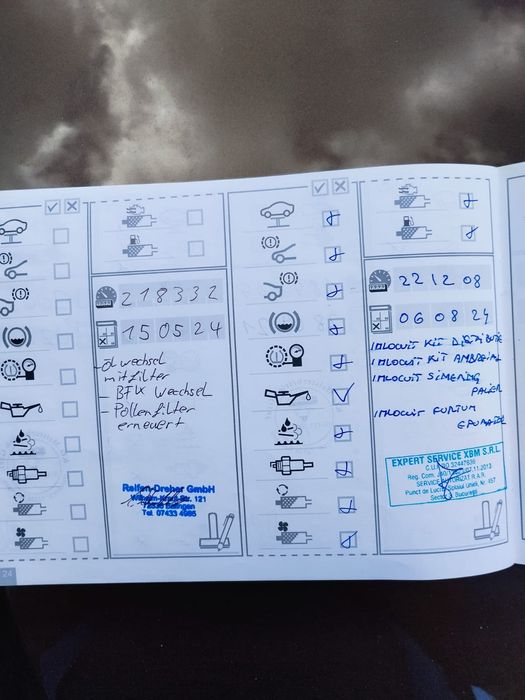 218332
15 05 24
- Öl wechsel
mit filter
- BFK Wechsel
- Pollenfilter
erneuert
Reifen-Dreher GmbH
Wilhelm-Kraut-Str. 121
72336 Balingen
Tel. 07433 4985
24
22 12 08
06 08 24
INLOCUIT KIT DISTRIBUTIE
INLOCUIT KIT AMBREIAJ
INLOCUIT SIMERING
PALIER
INLOCUIT
EXPERT SERVICE XBM S.R.L.
Reg. Com.
SERVICE AUTORIZAT R.A.R.
Punct de Lucru: Nr. 457
Sector București